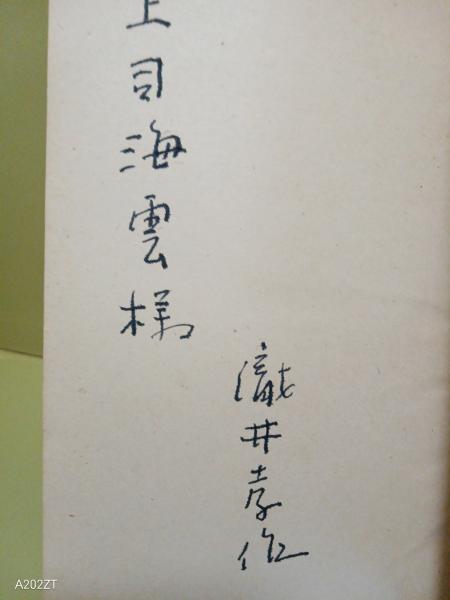 上司海雲様
瀧井孝作
A202ZT